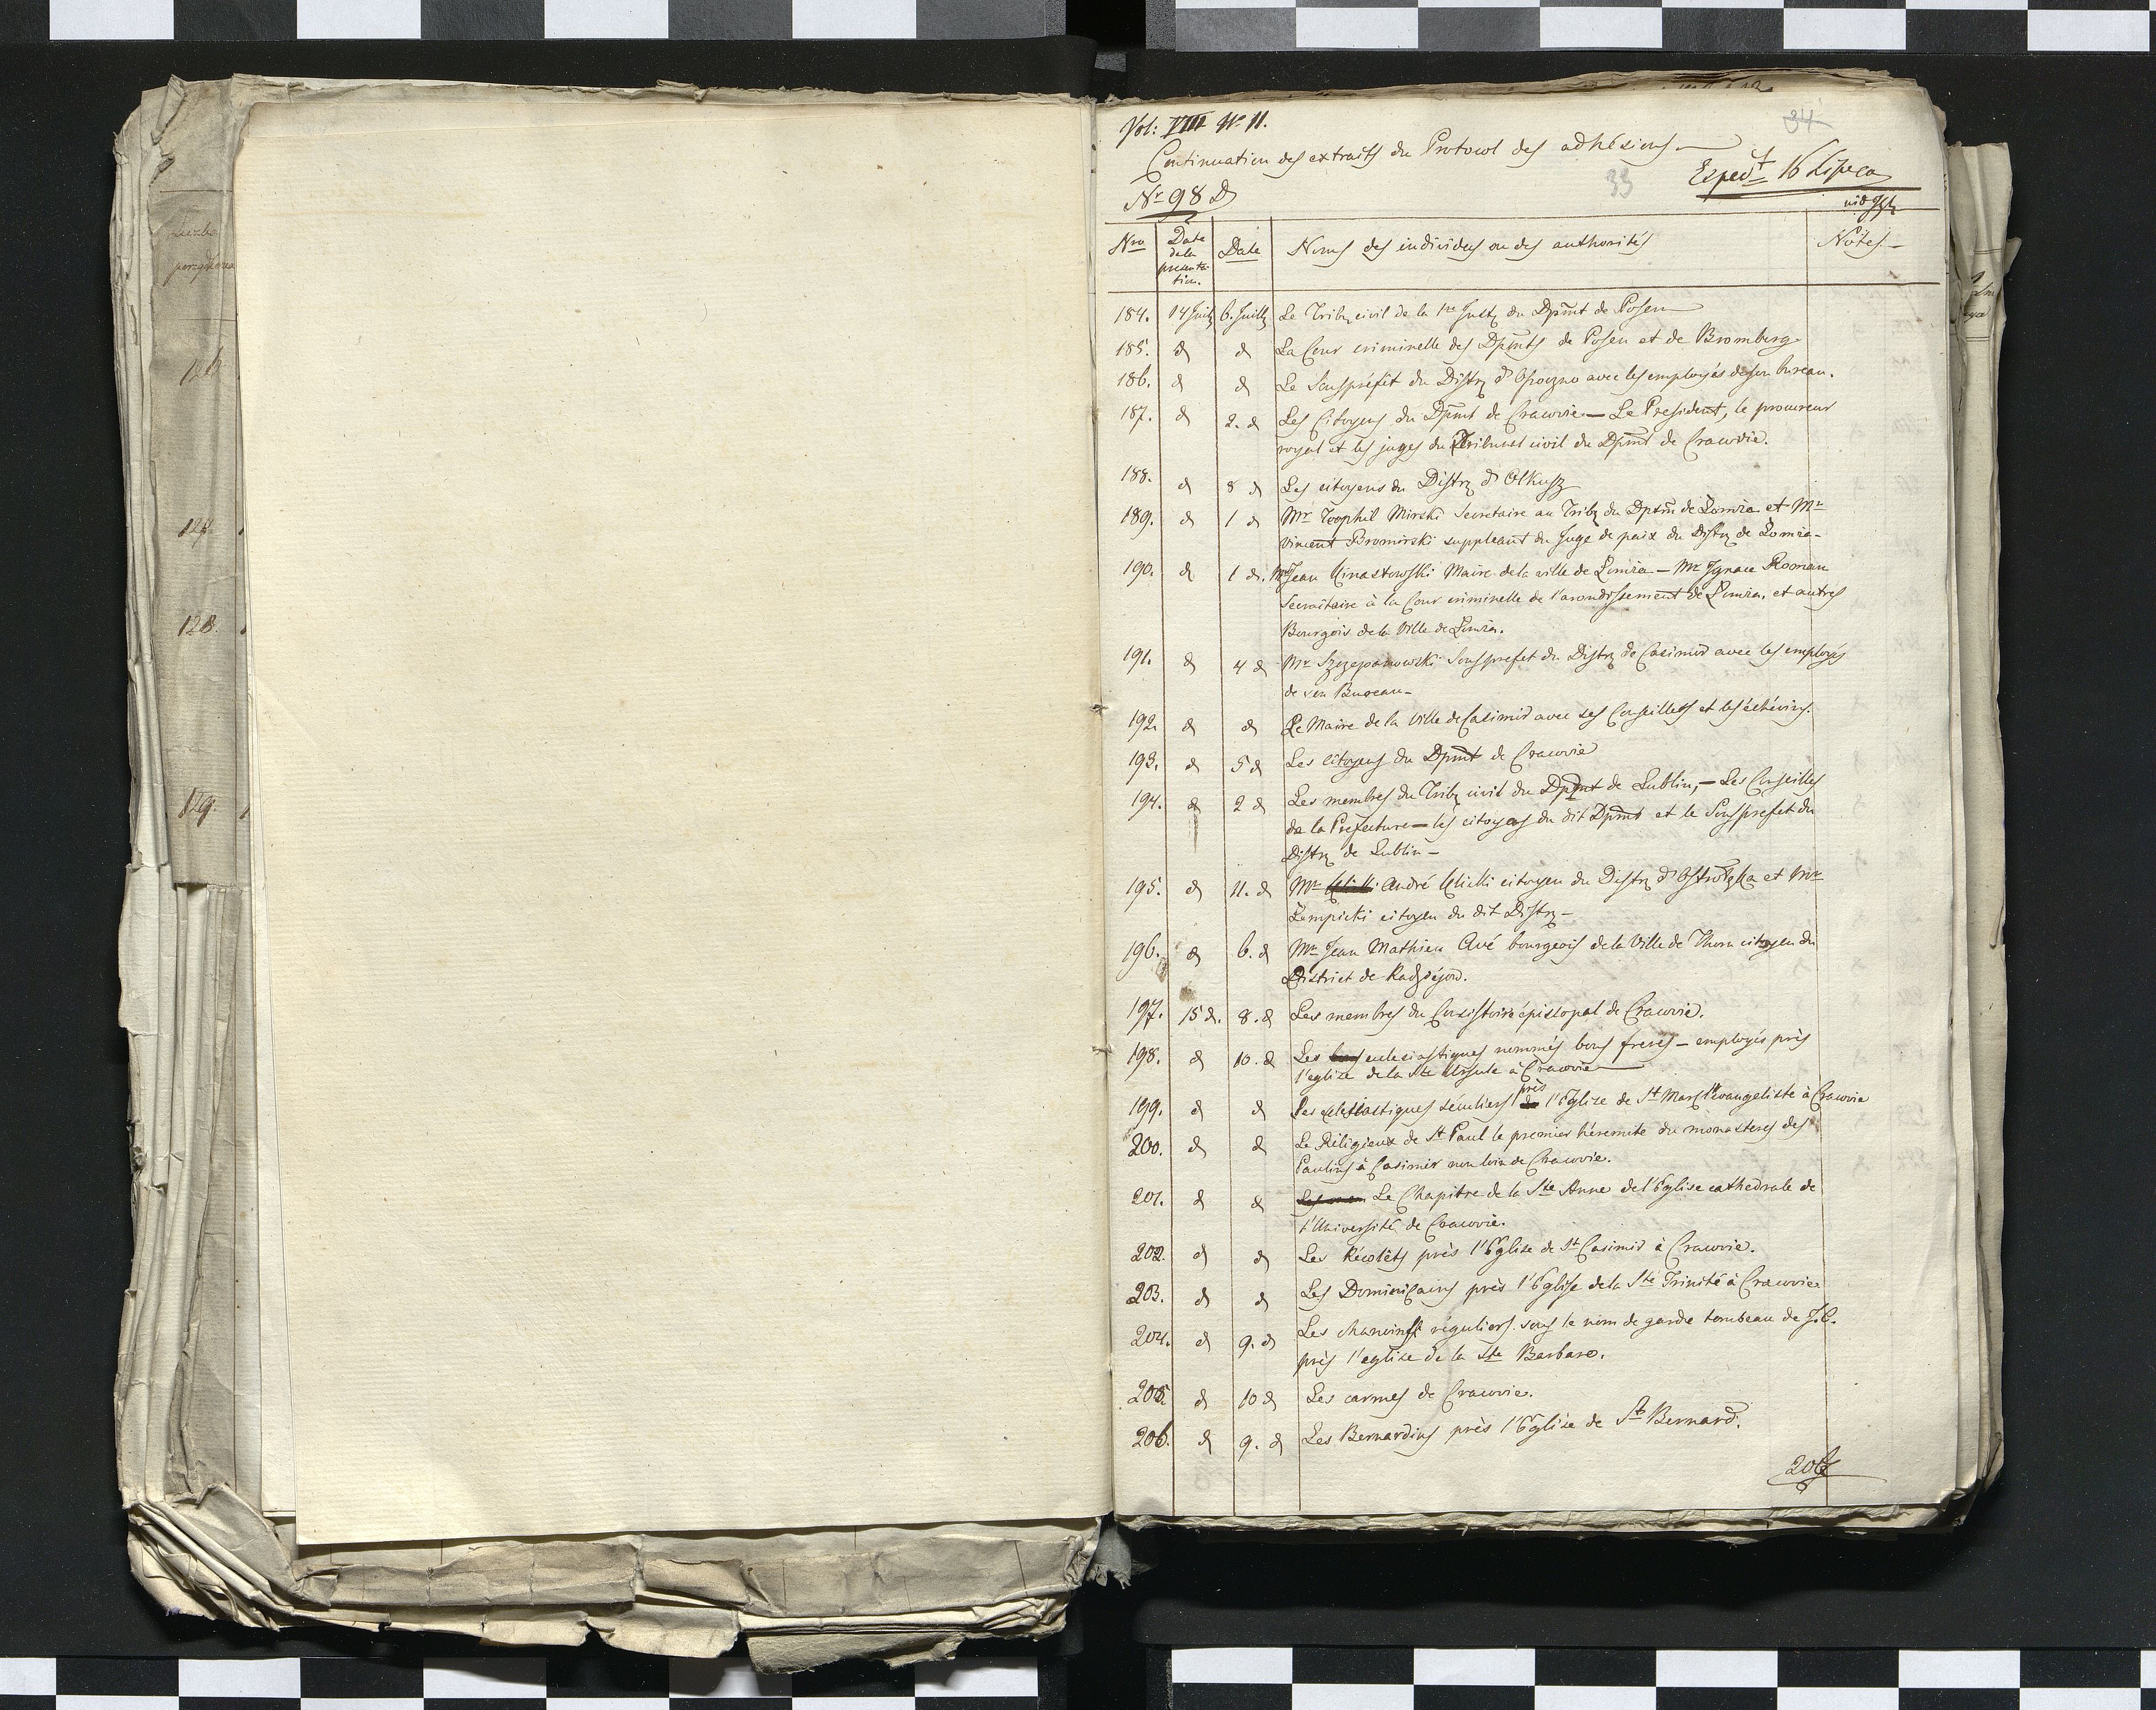 Vol: VIII Nr 11.
34
Continuation des extraits du Protocol des adhésions
33
Exped't 16 Lipca
Nr 98 D
Nro
Date de la presenta-tion.
Date
Noms des individus ou des authorités
Notes
184. 14 Juill 6. Juill Le Trib civil de la 1re Inst du Dpmt de Posen
185. d d La Cour criminelle des Dpmts de Posen et de Bromberg
186. d d Le Souspréfêt du Distr d'Opoczno avec les employés de son bureau.
187. d 2. d Les Citoyens du Dpmt de Cracovie – Le President, le procureur
royal et les juges du Tribunal civil du Dpmt de Cracovie.
188. d 8 d Les citoyens du Distr d'Olkusz
189. d 1 d Mr Teophil Mirski Secretaire au Trib du Dptm de Lomza et Mr
Vincent Bromirski suppleant du Juge de paix du Distr de Lomza –
190. d 1 d. Mr Jean Chrastowski Maire de la ville de Lomza – Mr Ignace Rooman
Secraitaire à la Cour criminelle de l'arondissement de Lomza, et autres
Bourgois de la Ville de Lomza.
191. d 4 d Mr Szczepanowski Sousprefet du Distr de Casimir avec les employés
de son Bureau –
192. d d Le Maire de la Ville de Casimir avec ses Conseillers et les échévins.
193. d 5 d Les citoyens du Dpmt de Cracovie
194. d 2 d Les membres du Trib civil du Dpmt de Lublin, – Les Conseilles
de la Prefecture – les citoyens du dit Dpmt et le Sousprefet du
Distr de Lublin –
195. d 11. d Mr André Glicki citoyen du Distr d'Ostrołęka et Mr
Lempicki citoyen du dit Distr –
196. d 6. d Mr Jean Mathieu Avé bourgeois de la Ville de Thorn citoyen du
District de Radziéjow.
197. 15 d. 8. d Les membres du Consistoire épiscopal de Cracovie.
198. d 10. d Les eclesiastiques nommés bons freres – employés près
l'eglise de la Ste Ursule à Cracovie
près
199. d d Les eclesiastiques séculiers l'Eglise de St Marc l'evangeliste à Cracovie
200. d d Le Réligieux de St Paul le premier héremite du monasteres des
Paulins à Casimir non loin de Cracovie.
201. d d Le Chapitre de la Ste Anne de l'Eglise cathedrale de
l'Université de Cracovie.
202. d d Les Récolêts près l'Eglise de St Casimir à Cracovie.
203. d d Les Dominicains près l'Eglise de la Ste Trinité à Cracovie
204. d 9. d Les chanoines réguliers sous le nom de garde tombeau de J.C.
près l'eglise de la Ste Barbare.
205 d 10 d Les carmes de Cracovie.
206. d 9. d Les Bernardins près l'Eglise de St Bernard.
206
126.
127.
128.
129.